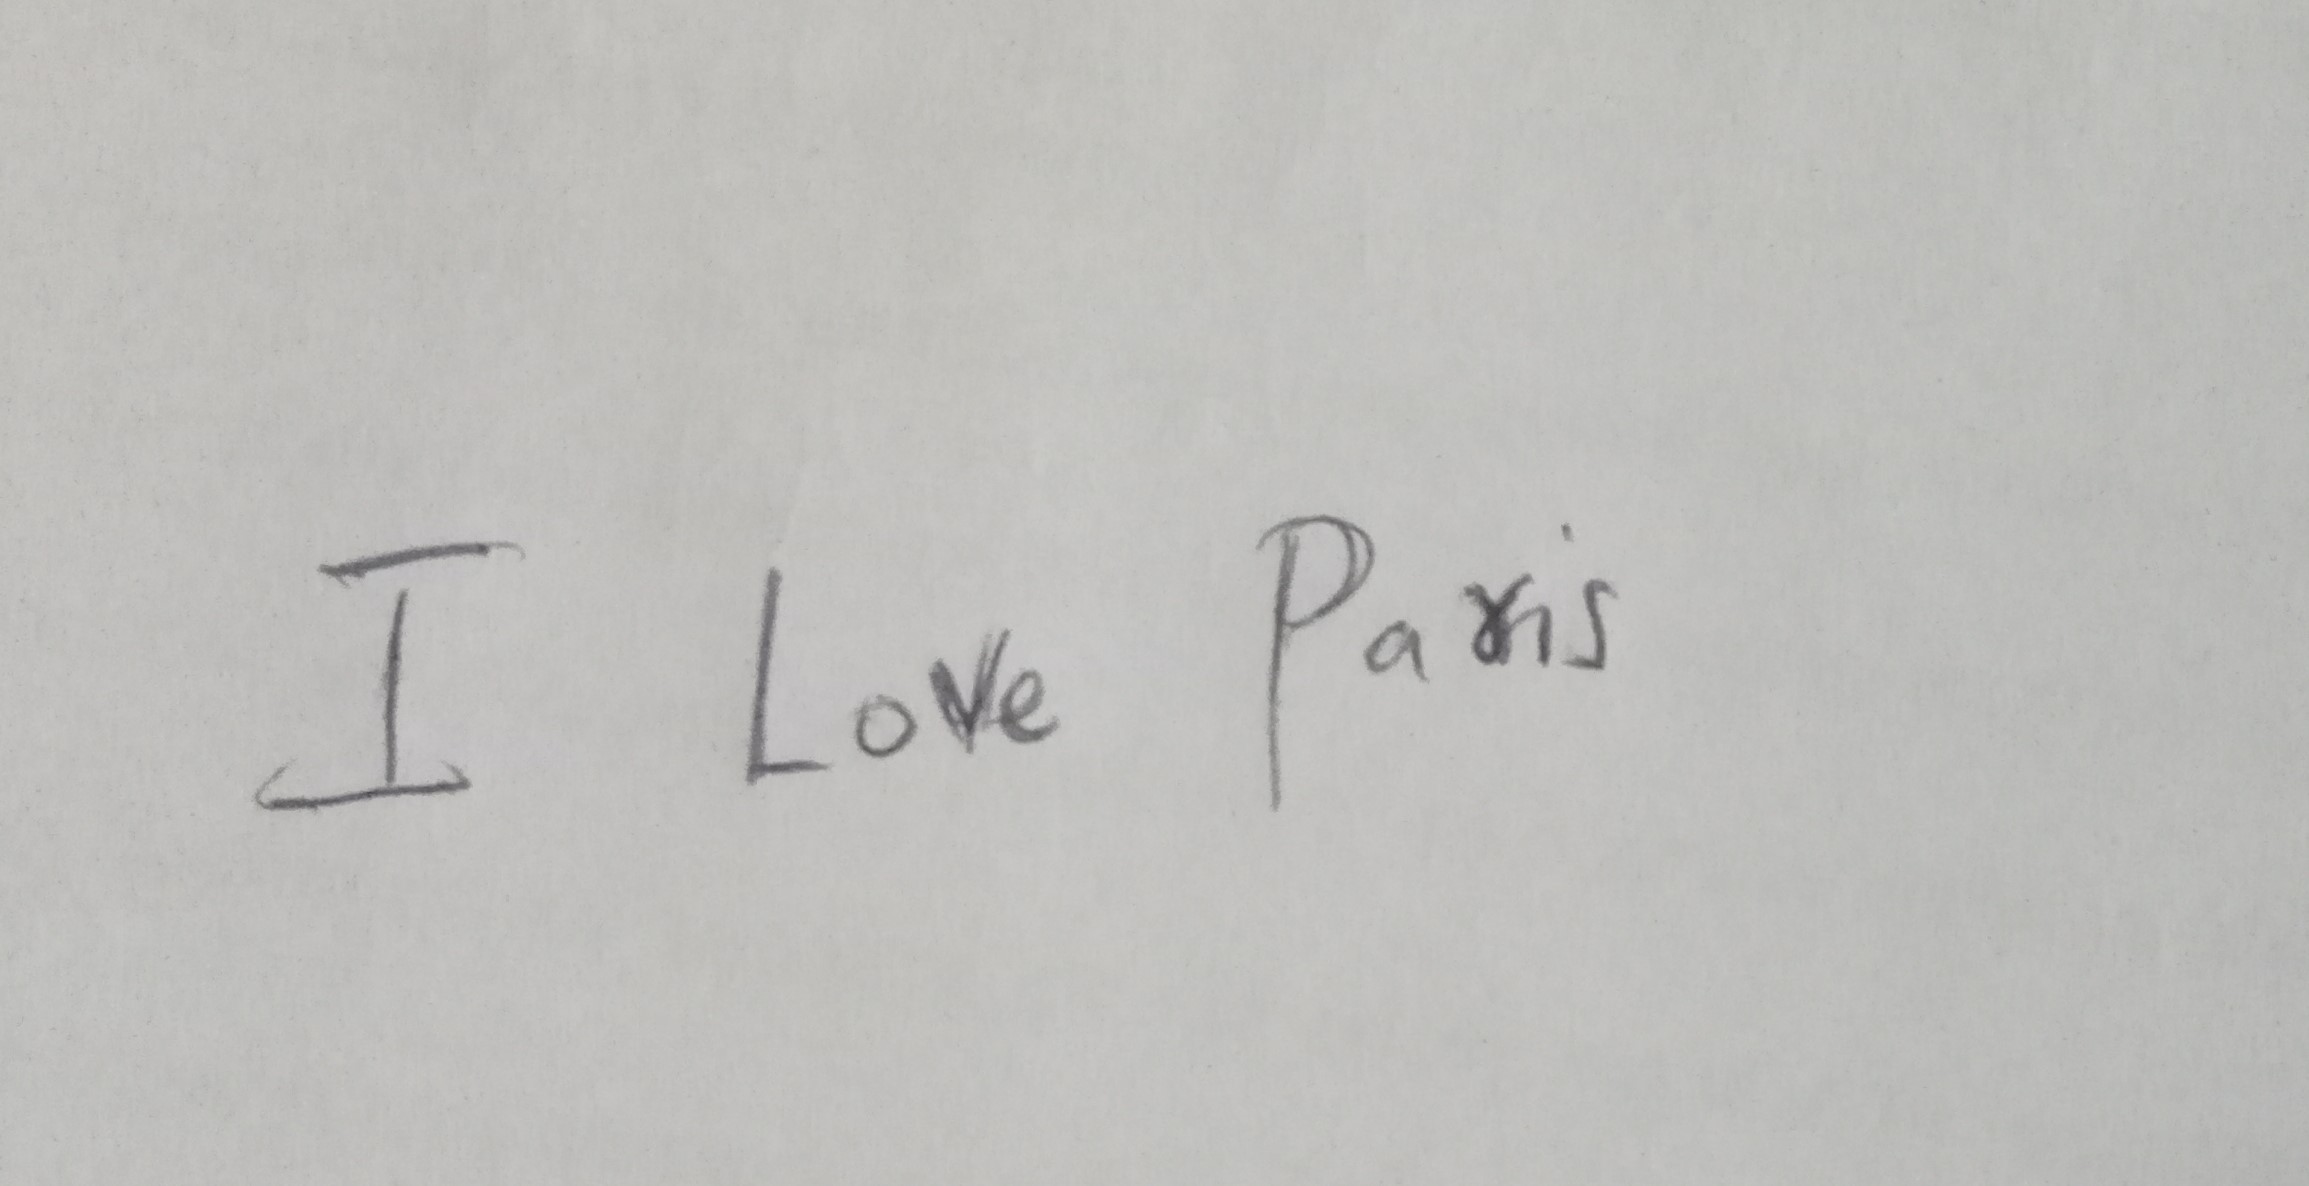 I Love Paris